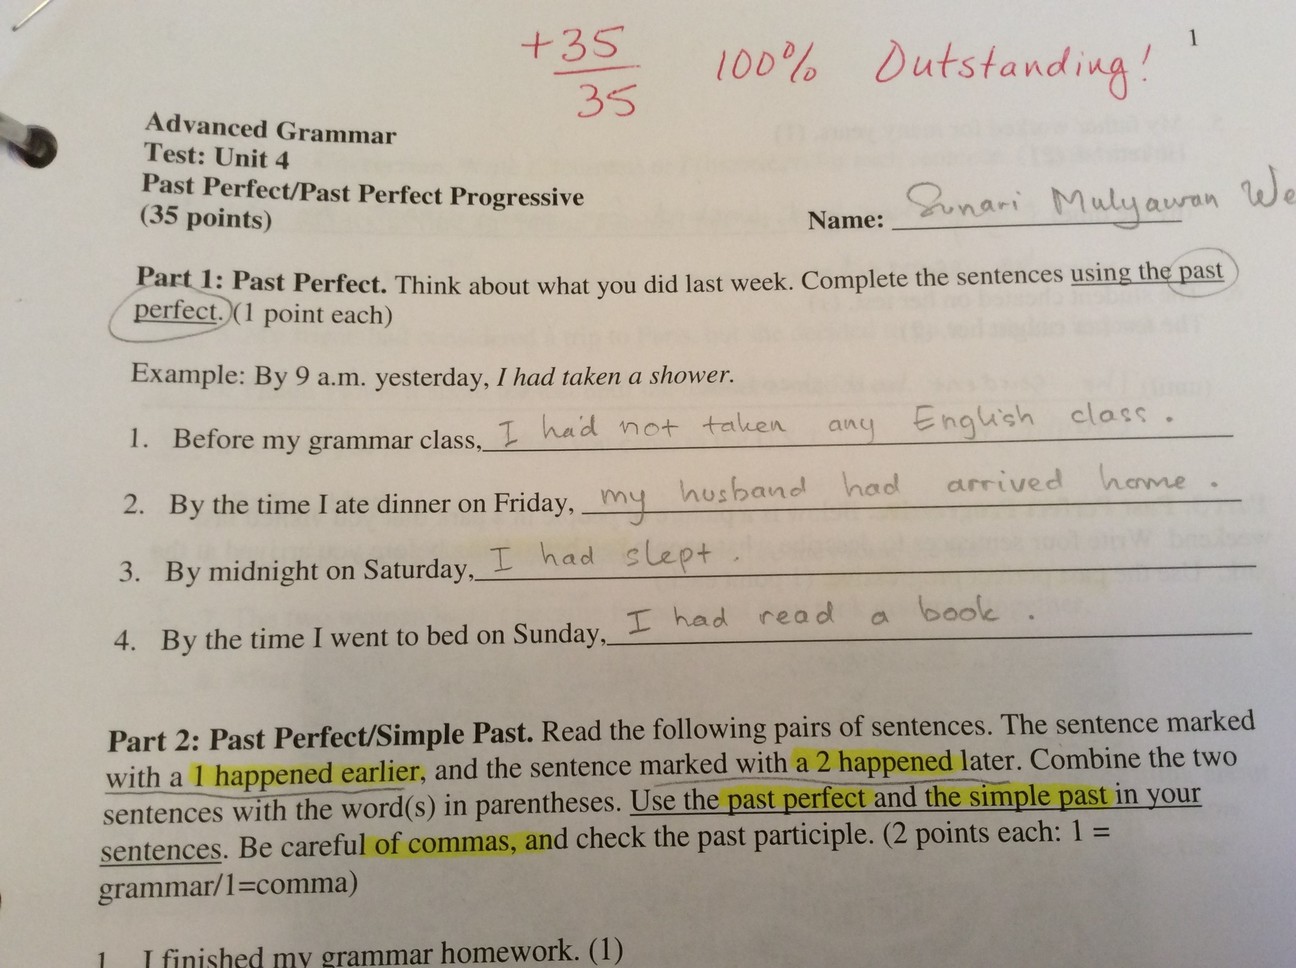 1
+35
35
100% Outstanding!
Advanced Grammar
Test: Unit 4
Past Perfect/Past Perfect Progressive
(35 points)
Name: Sunari Mulyawan We
Part 1: Past Perfect. Think about what you did last week. Complete the sentences using the past
perfect. (1 point each)
Example: By 9 a.m. yesterday, I had taken a shower.
1. Before my grammar class, I had not taken any English class.
2. By the time I ate dinner on Friday, my husband had arrived home.
3. By midnight on Saturday, I had slept.
4. By the time I went to bed on Sunday, I had read a book.
Part 2: Past Perfect/Simple Past. Read the following pairs of sentences. The sentence marked
with a 1 happened earlier, and the sentence marked with a 2 happened later. Combine the two
sentences with the word(s) in parentheses. Use the past perfect and the simple past in your
sentences. Be careful of commas, and check the past participle. (2 points each: 1 =
grammar/1=comma)
1 I finished my grammar homework. (1)